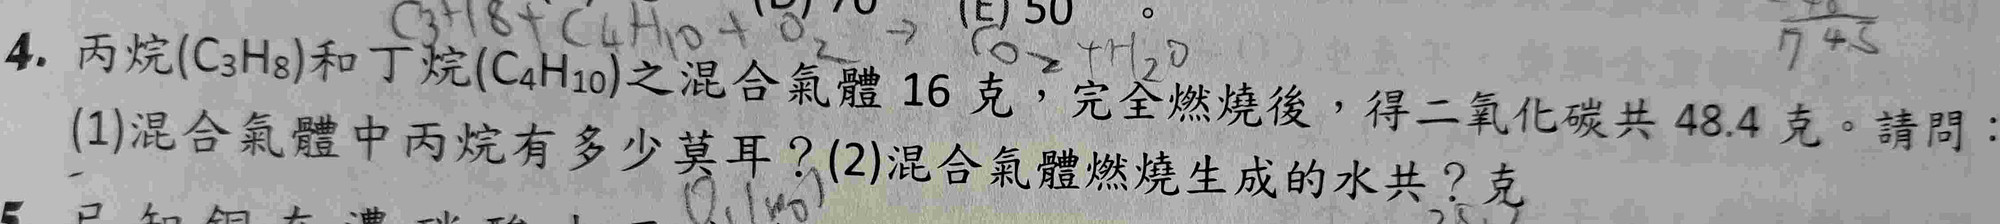 (E) 50 。
C3H8 + C4H10 + O2 → CO2 + H2O
4. 丙烷(C3H8)和丁烷(C4H10)之混合氣體 16 克，完全燃燒後，得二氧化碳共 48.4 克。請問：
(1)混合氣體中丙烷有多少莫耳？(2)混合氣體燃燒生成的水共？克